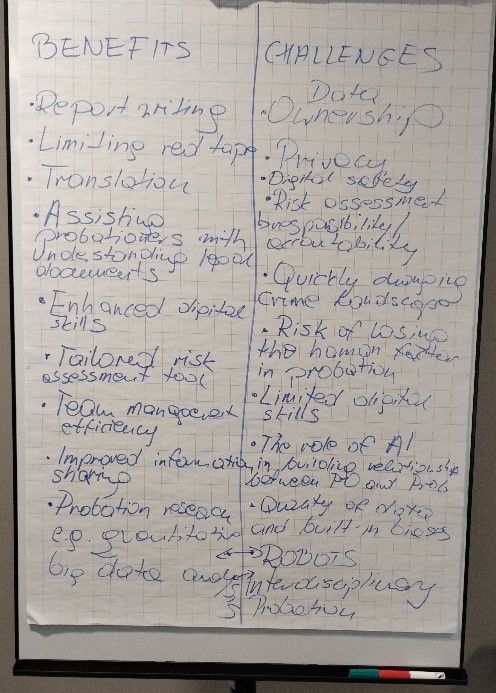 BENEFITS
• Report writing
• Limiting red tape
• Translation
• Assisting
probationers with
understanding legal
documents
• Enhanced digital
skills
• Tailored risk
assessment tool
• Team management
efficiency
• Improved information
sharing
• Probation research
e.g. quantitative
big data analysis
CHALLENGES
Data
• Ownership
• Privacy
• Digital safety
• Risk assessment
& responsibility/
accountability
• Quickly changing
crime landscape
• Risk of losing
the human factor
in probation
• Limited digital
skills
• The role of AI
in building relationship
between PO and Prob
• Quality of data
and built-in biases
↔ ROBOTS
Interdisciplinary
Probation